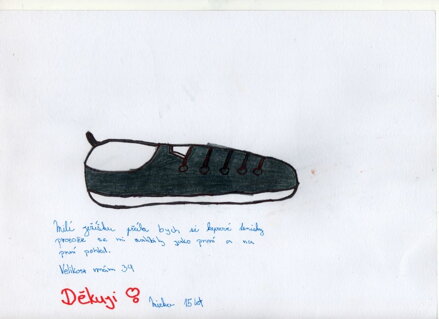 Milý Ježíšku přála bych si barevné tenisky
protože se mi zalíbily jako první a na
první pohled.
Velikost mám 39
Děkuji
15 let